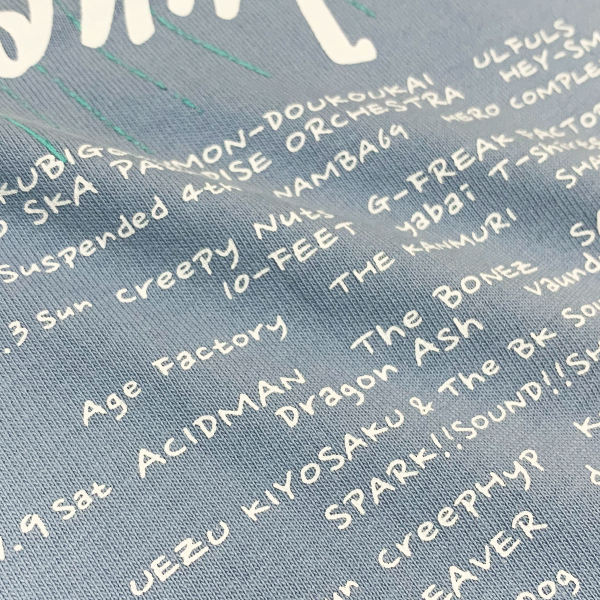 ULFULS
KUBIGS PAIMON-DOUKOUKAI HEY-SM
SKA PARADISE ORCHESTRA HERO COMPLE
Suspended 4th NAMBA69 G-FREAK FACTO
.3 Sun creepy Nuts yabai T-shirts SHA
10-FEET THE KANMURI
Age Factory The BONEZ
.9 Sat ACIDMAN Dragon Ash Vaund
UEZU KIYOSAKU & The BK Sou
SPARK!!SOUND!!SH
creepHyp
EAVER